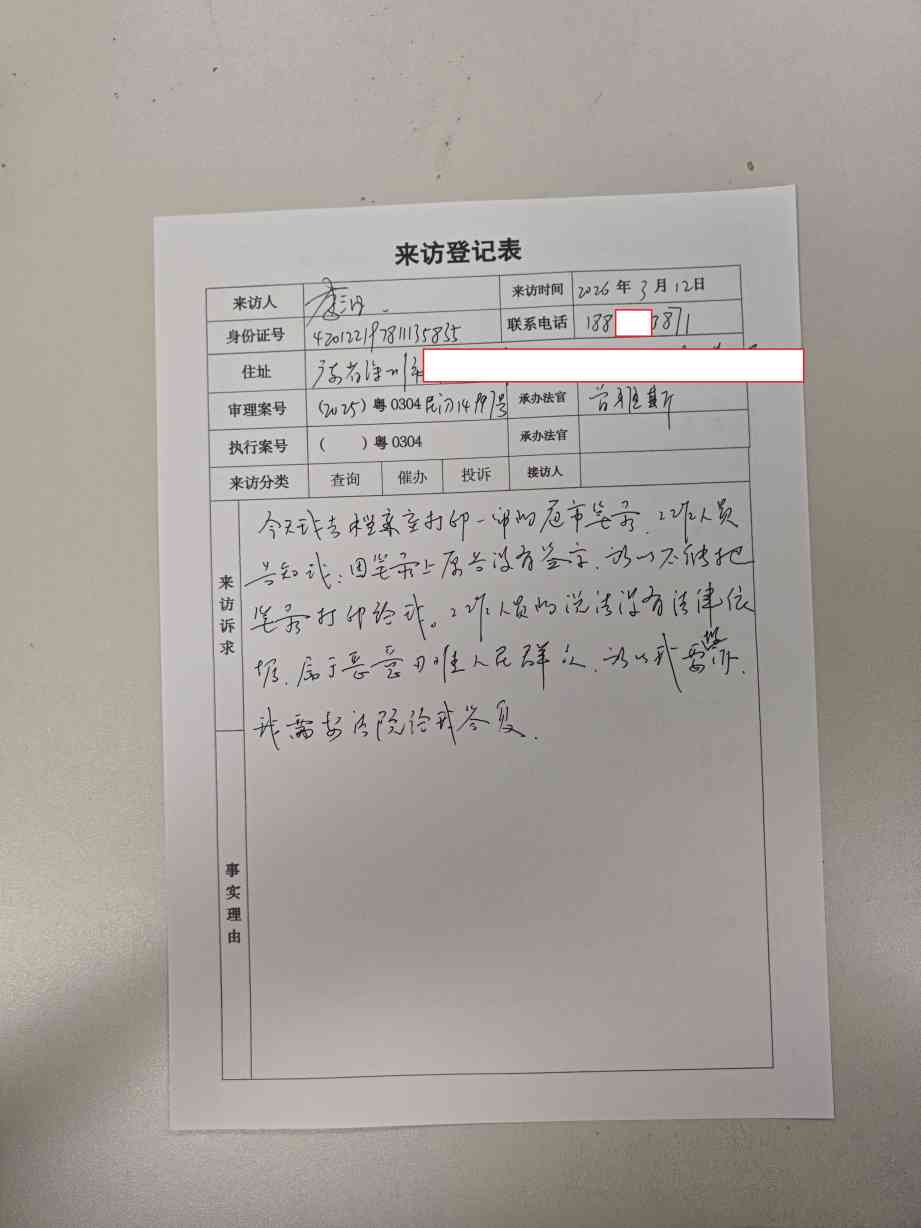 来访登记表
来访人 来访时间 2026年3月12日
身份证号 420122197811135835 联系电话 188 3871
住址 广东省深圳市
审理案号 (2025)粤0304民初 号 承办法官 曾雅斯
执行案号 ( )粤0304 承办法官
来访分类 查询 催办 投诉 接访人
来访诉求
今天我去档案室打印一审的庭审笔录，工作人员
告知我：因笔录上原告没有签字，所以不能把
笔录打印给我。工作人员的说法没有法律依
据，属于恶意刁难人民群众，所以我要投诉，
我需要法院给我答复。
事实理由